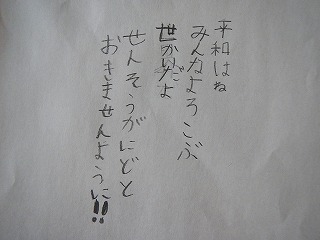 平和はね
みんなよろこぶ
世かいだよ
せんそうがにどと
おきませんように!!